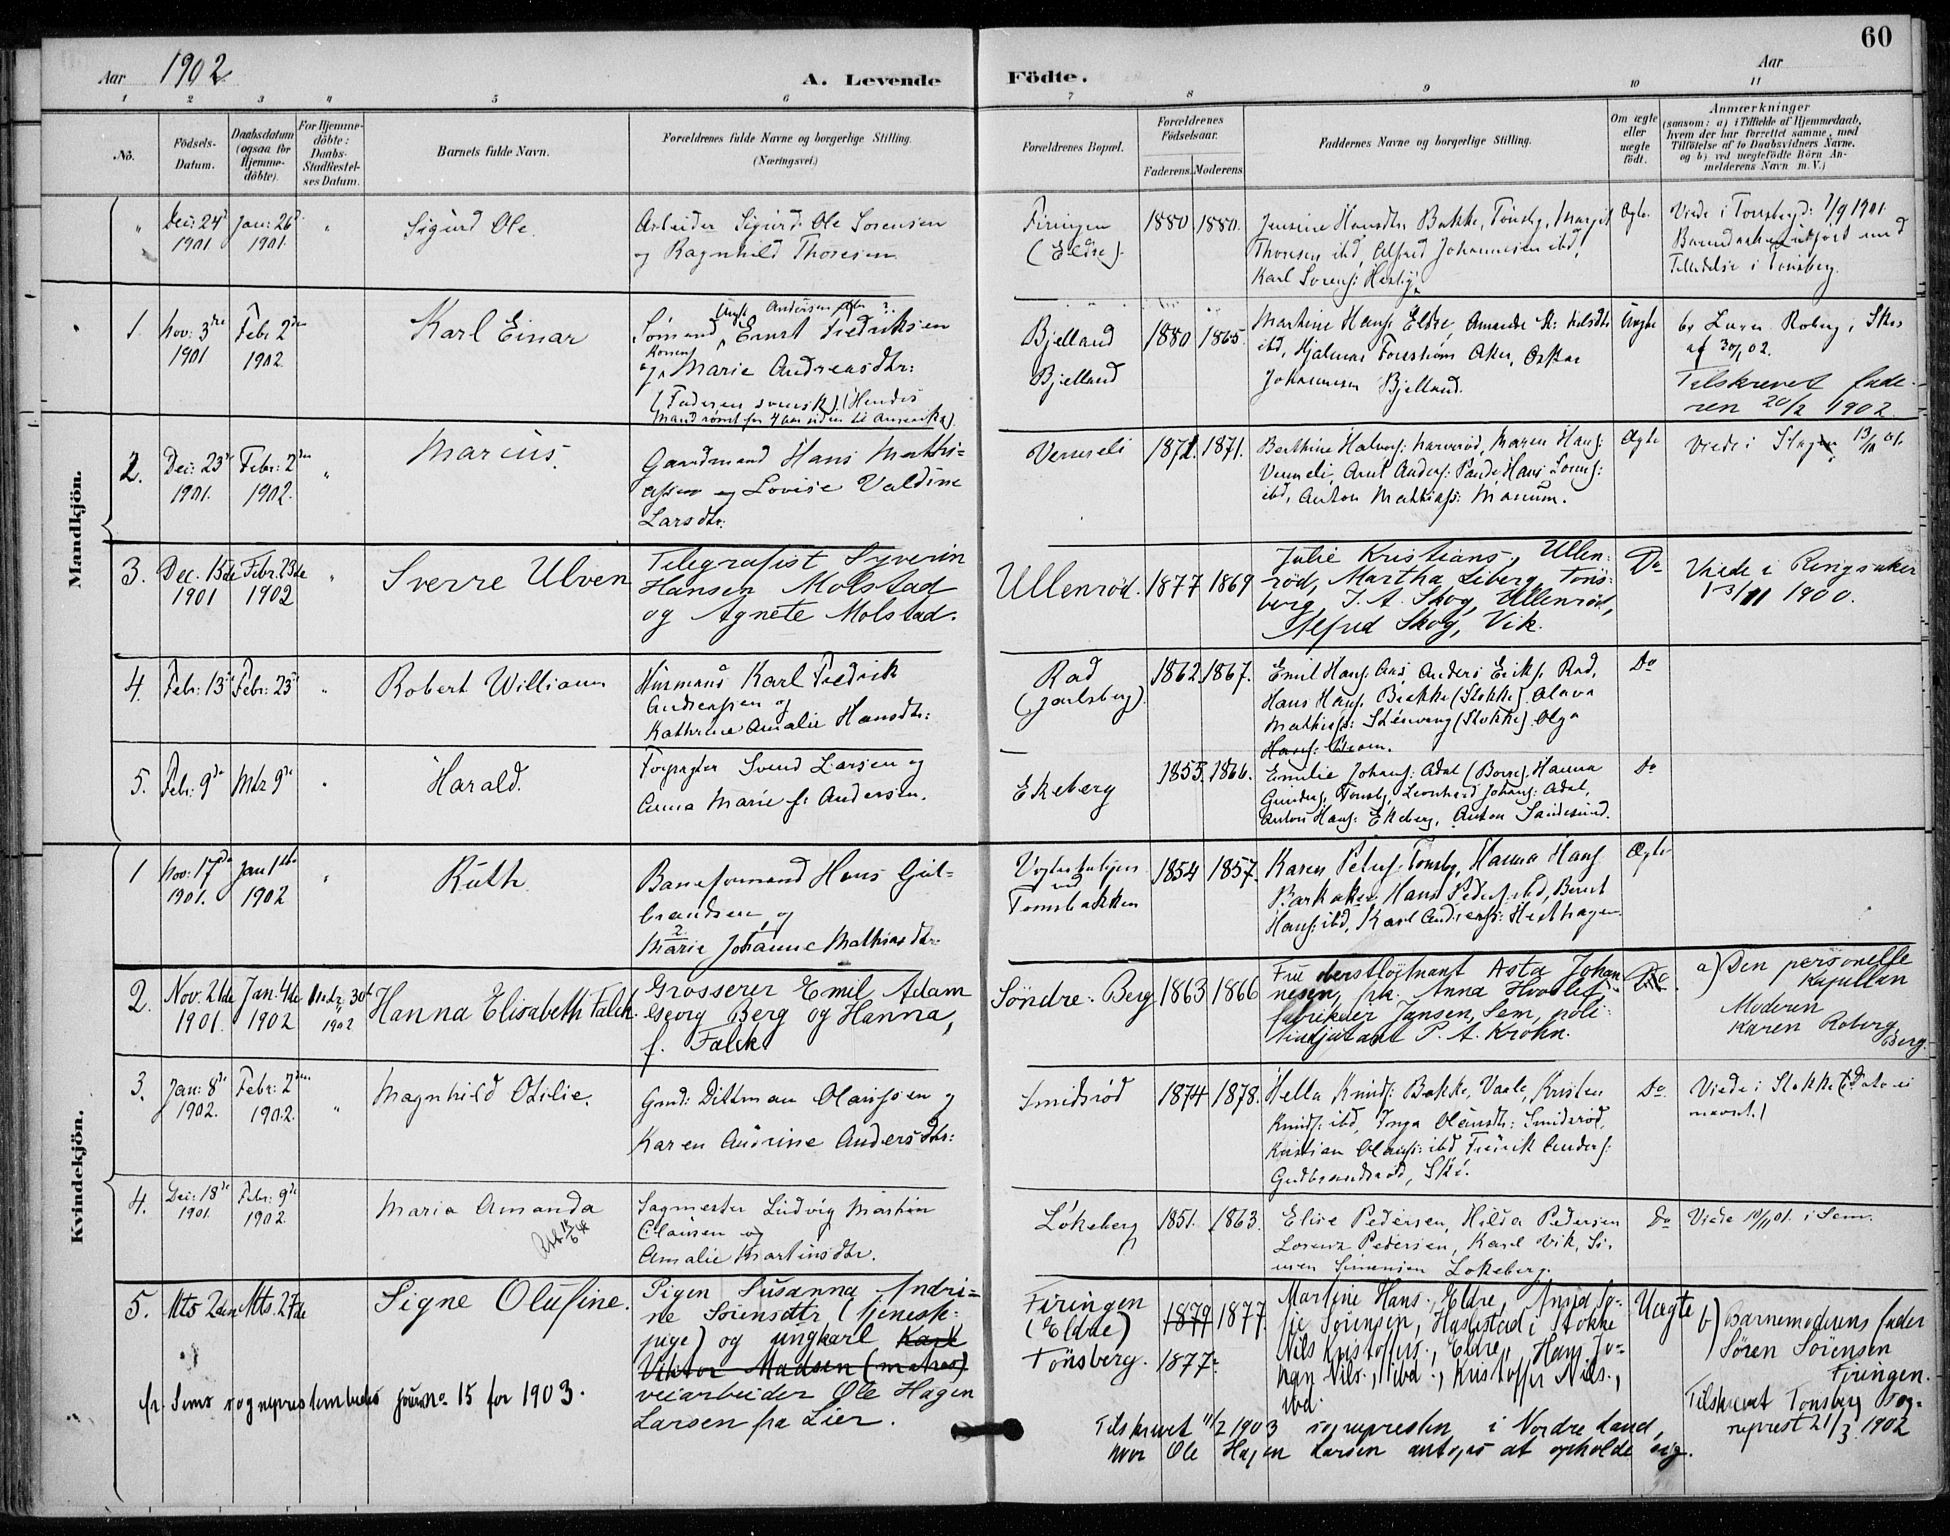 60
Aar 1902
A. Levende
Födte.
Aar
1 2 3 4 5 6 7 8 9 10 11
No.
Födsels-
Datum.
Daabsdatum
(ogsaa for
Hjemme-
döbte).
For Hjemme-
döbte:
Daabs-
Stadfæstel-
ses Datum.
Barnets fulde Navn.
Forældrenes fulde Navne og borgerlige Stilling.
(Næringsvei.)
Forældrenes Bopæl.
Forældrenes
Födselsaar.
Faderens. Moderens.
Faddernes Navne og borgerlige Stilling.
Om ægte
eller
uægte
födt.
Anmærkninger
(saasom: a) i Tilfælde af Hjemmedaab,
hvem der har forrettet samme, med
Tilföielse af to Daabsvidners Navne.
og b) ved uægtefödte Börn An-
melderens Navn m. V.)
Mandkjön.
Dec: 24 1901
Jan: 26 1901
Sigurd Ole.
Arbeider Sigurd Ole Sorensen
og Ragnhild Thoresen
Firingen
(Eldre).
1880 1880.
Jensine Hansdtr Bakke, Tönsbg, Margit
Thoresen ibd, Alfred Johannesen ibd,
Karl Sorens:
Ægte.
Viede i Tonsberg d: 7/9 1901
Tonsberg.
1. Nov: 3die 1901
Febr 2den 1902.
Karl Einar
Sömand, Ernst Fredriksen
og Marie Andreasdtr:
(Faderen svensk) (Hendes
Mand römt for 4 aar siden til Amerika).
Bjelland
Bjelland
1880 1865.
Martine Hans: Eldre, Amande
ibd, Hjalmar Aker, Oskar
Johannesen Bjelland.
Uægte
af 30/1 02.
Tilskrevet fade-
ren 20/2 1902
2. Dec: 23 1901.
Febr: 2den 1902.
Marius.
Gaardmand Hans Mathi-
assen og Lovise Valdine
Larsdtr:
Venneli
1872. 1871.
Berthine Halvors: Narverød, Maren Hans:
Venneli, Anders: Hans Sorens:
ibd, Anton Mathiass:
Ægte
Viede i
3. Dec. 15de 1901
Febr. 23de 1902
Sverre Ulven
Telegrafist Syverin
Hansen Molstad
og Agnete Molstad.
Ullenrød.
1877 1869
Julie Kristians., Ullen-
rød, Martha Liberg, Töns-
berg, J. A. Skog, Ullenrød,
Alfred Skog, Vik.
Do
Viede i Ringsaker
13/11 1900.
4. Febr: 13
Febr: 23
Robert William
Husmand Karl Fredrik
Andreassen og
Kathrine Amalie Hansdtr:
Rød
(Jarlsberg).
1862 1867.
Emil Hans: Aas, Anders Eriks: Rød,
Hans Hans: Bakke (Stokke), Olava
Mathiass: (Stokke), Olga
Hans:
Do
5. Febr: 9de
Mts 9de
Harald.
Forpagter Svend Larsen og
Anna Marie f: Andersen.
Ekeberg
1855. 1866.
Emilie Johans: Adal (Borre), Hanna
Tonsbg, Leonhard Johans: Adal,
Anton Hans: Ekeberg, Anton Sandesund.
Do
Kvindekjön.
1 Nov: 17de 1901.
Jan 1ste 1902
Ruth.
Baneformand Hans Gul-
brandsen og
Marie Johanne Mathiasdtr:
Vogterboligen
ved
Tomsbakken
1854 1857.
Karen Peters: Tonsbg, Hanna Hans:
Barkaker, Hans Peders: ibd, Bernt
Hans: ibd, Karl Andreas: Hesthagen
Ægte
2. Nov. 21de 1901.
Jan. 4de 1902
1902
Hanna Elisabeth Falck.
Grosserer Emil Adam
Georg Berg og Hanna,
f. Falck
Söndre. Berg
1863 1866
Fru oberstløjtnant Asta Johan-
nesen, frk. Anna
fabrikeier Jansen, Sem, poli-
tiadjutant P. A. Krohn.
Do
a) Den personelle
Kapellan
Moderen
Karen Roberg,
Berg.
3. Jan: 8de 1902.
Febr: 2den 1902.
Magnhild Otilie.
Gmd: Dittman Olaussen og
Karen Andrine Andersdtr:
Smidsrød
1874 1878.
Hella Knuds: Bakke, Vaale, Kristen
Knuds: ibd, Inga Olausdtr: Smidsrød,
Kristian Olauss: ibd Fredrik Anders:
Gudbrandsrød,
Do
Viede i Stokke (Dato ei
nævnt.)
4. Dec: 18de 1901.
Febr: 9de 1902.
Maria Amanda
Sagmester Ludvig Martin
Clausen og
Amalie Martinsdtr.
Lökeberg
1851. 1863.
Elise Pedersen, Hilda Pedersen
Lorenz Pedersen, Karl Vik, Si-
men Simensen Lökeberg.
Do
Viede 10/11 01. i Sem.
5. Mts 2den
Mts. 27de
Signe Olufine.
Pigen Susanna Andri-
ne Sörensdtr (tjeneste-
pige) og ungkarl Karl
Viktor Madsen (matros)
veiarbeider Ole Hagen
Larsen fra Lier.
Firingen
(Eldre)
Tönsberg.
1879 1877
1877.
Martine Hans., Eldre, Anna So-
fie Sörensen, i Stokke
Nils Kristoffers., Eldre, Hans Jo-
han Nils., ibd., Kristoffer Nils.,
ibd.
Uægte
b) Barnemoderens fader
Søren Sörensen
Firingen.
Tilskrevet Tonsberg Sog-
neprest 21/3 1902
fr. Sems sogneprestembedes jour.no. 15 for 1903.
Tilskrevet 11/2 1903 sognepresten i Nordre Land,
hvor Ole Hagen Larsen antages at opholde sig.